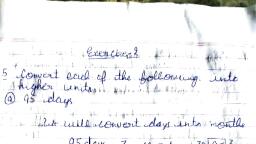 Exercise 2
5 Convert each of the following into
higher units.
(a) 95 days
will convert days into months
95 days